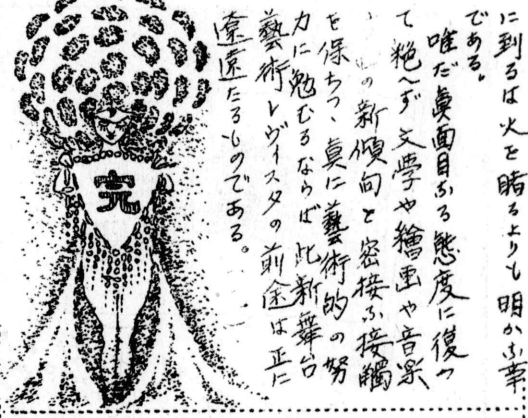 に到るは火を睹るよりも明かな事
である。
唯だ眞面目なる態度に復つ
て絶へず文學や繪画や音楽
の新傾向と密接な接觸
を保ちつゝ真に藝術的の努
力に勉むるならば此新舞台
藝術レヴイスタの前途は正に
遼遠たるものである。
完